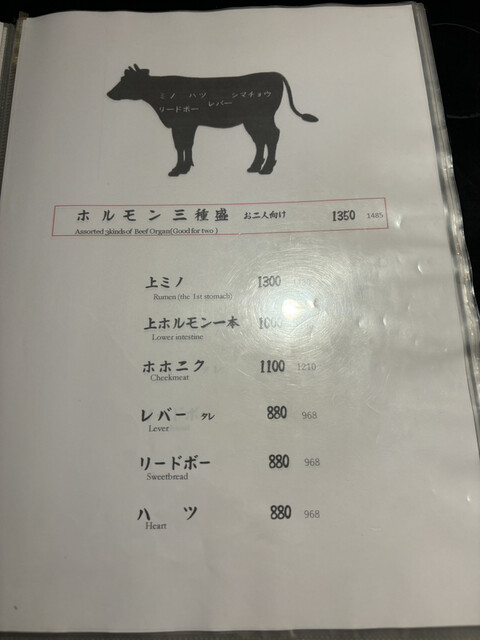 ミノ ハツ シマチョウ
リードボー レバー
ホルモン三種盛 お二人向け 1350 1485
Assorted 3kinds of Beef Organ(Good for two )
上ミノ 1300
Rumen (the 1st stomach)
上ホルモン一本
Lower intestine
ホホニク 1100 1210
Cheekmeat
レバー タレ 880 968
Lever
リードボー 880 968
Sweetbread
ハツ 880 968
Heart